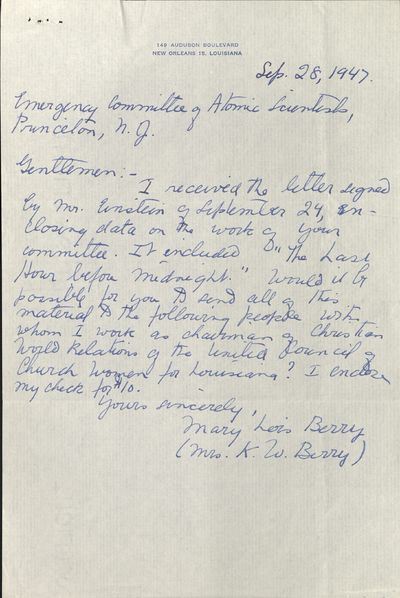 149 AUDUBON BOULEVARD
NEW ORLEANS 15, LOUISIANA
Sep. 28, 1947.
Emergency Committee of Atomic Scientists,
Princeton, N. J.
Gentlemen:-
I received the letter signed
by Mr. Einstein of September 24, en-
closing data on the work of your
committee. It included "The Last
Hour before Midnight." Would it be
possible for you to send all of this
material to the following people with
whom I work as chairman of Christian
World Relations of the United Council of
Church Women for Louisiana? I enclose
my check for $10.
Yours sincerely,
Mary Lois Berry
(Mrs. K. W. Berry)